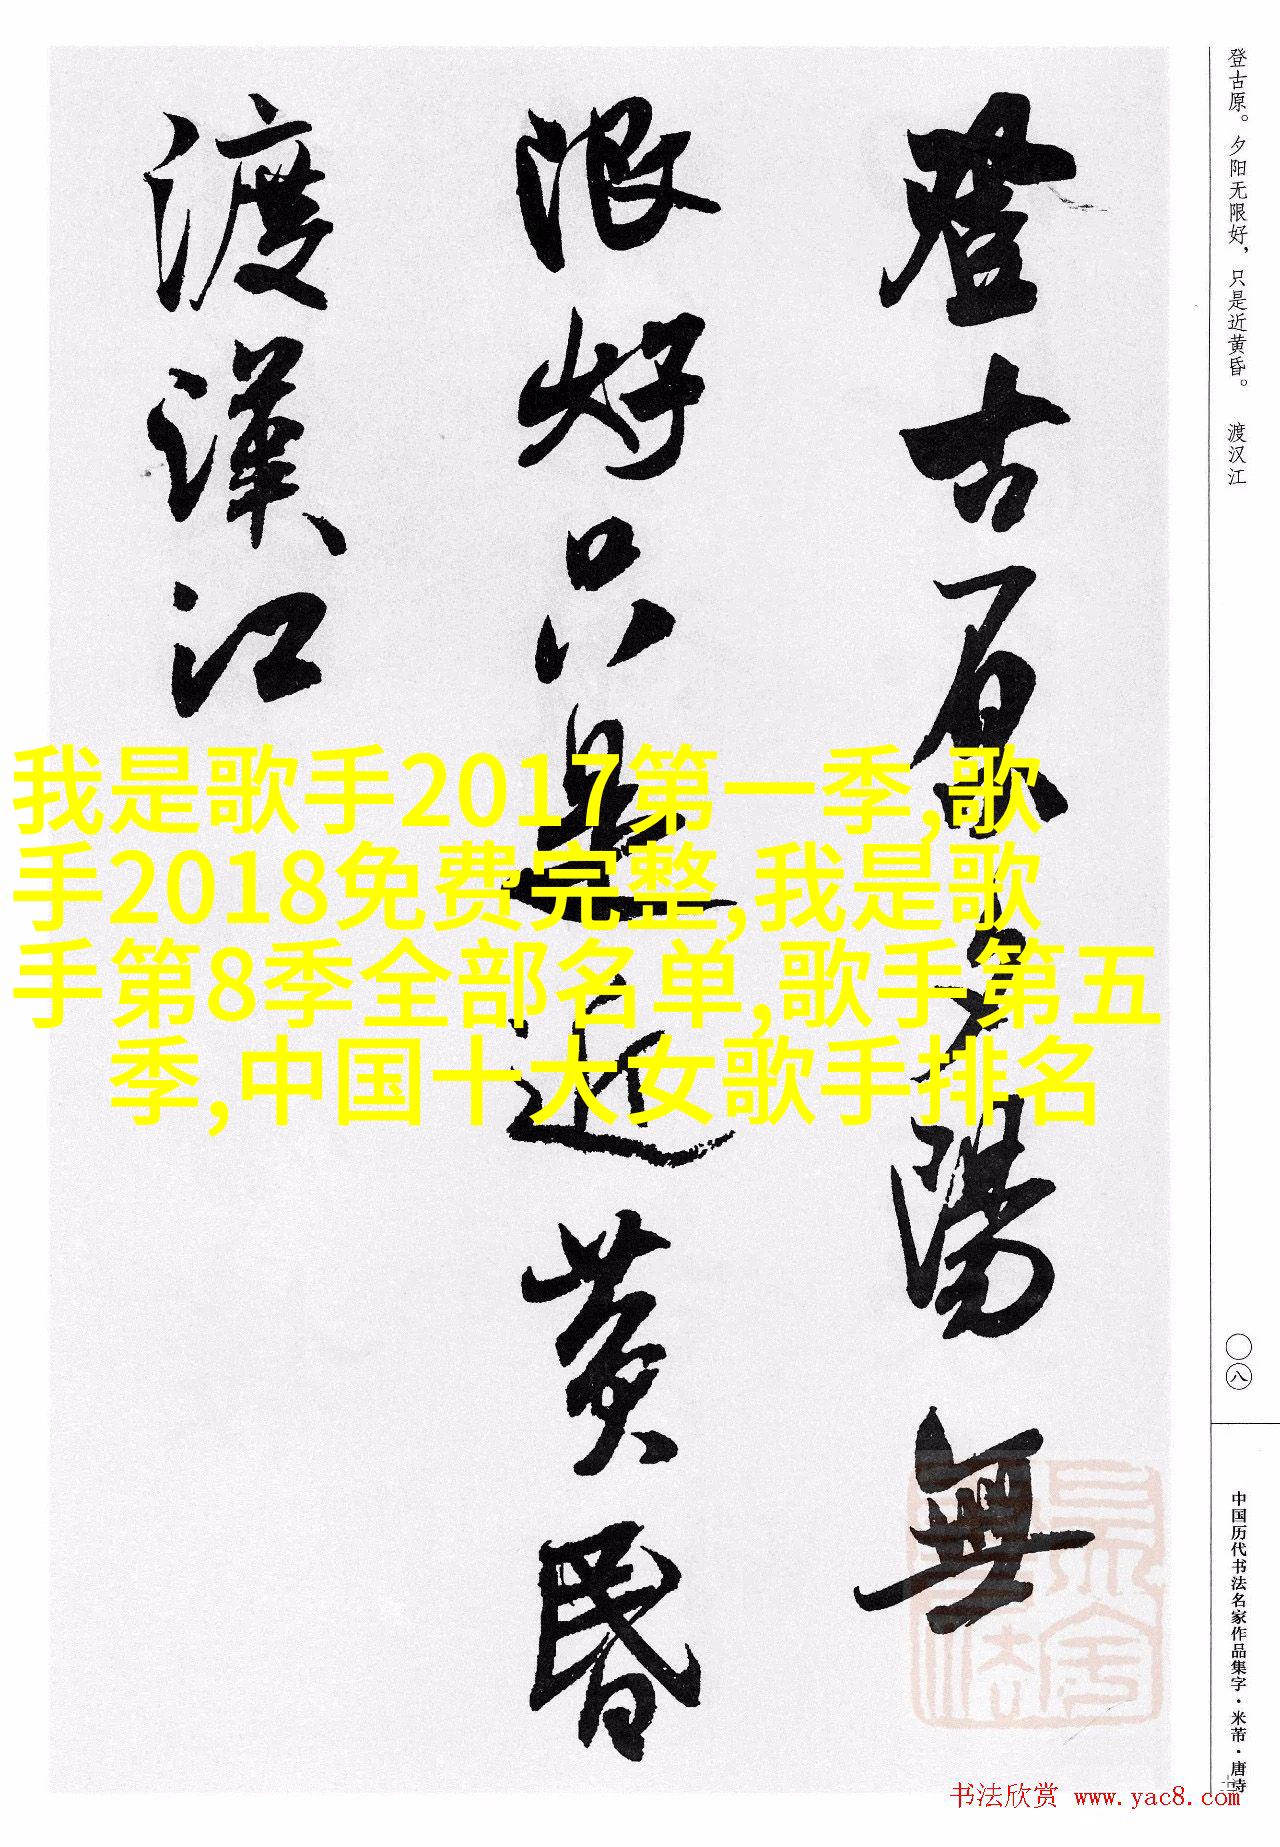 登古原。夕阳无限好，只是近黄昏。 渡汉江
登古原夕陽無
限好只是近黄昏
渡漢江
我是歌手2017第一季,歌
手2018免费完整,我是歌
手第8季全部名单,歌手第五
季,中国十大女歌手排名
〇八
中国历代书法名家作品集字·米芾·唐诗
书法欣赏 www.yac8.com